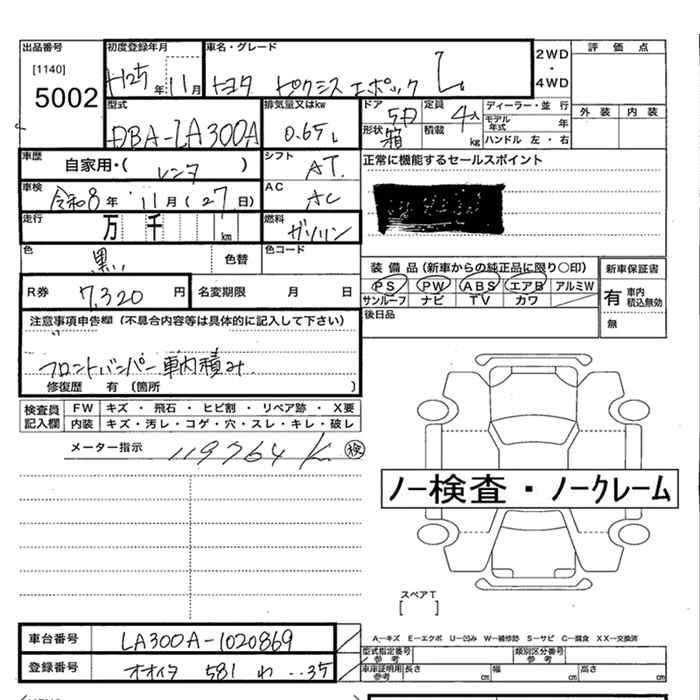 出品番号 初度登録年月 車名・グレード 2WD ・ 4WD 評価点
[1140] 5002 H25年11月 トヨタ ピクシス エポック L
外装 内装
型式 排気量又はkw ドア 5D 定員 4人 ディーラー・並行
DBA-LA300A 0.65L 形状 箱 積載 kg モデル年式 年
ハンドル 左・右
車歴 自家用・(レンタ) シフト AT. 正常に機能するセールスポイント
車検 令和8年 11月(27日) AC AC
走行 万 千 km 燃料 ガソリン
色 黒 色替 色コード
装備品(新車からの純正品に限り○印) 新車保証書
R券 7,320円 名変期限 月 日
PS PW ABS エアB アルミW 有 車内積込無効
サンルーフ ナビ TV カワ
後日品 無
注意事項申告欄(不具合内容等は具体的に記入して下さい)
フロントバンパー車内積み.
修復歴 有(箇所 )
検査員記入欄 FW キズ・飛石・ヒビ割・リペア跡・X要
内装 キズ・汚レ・コゲ・穴・スレ・キレ・破レ
メーター指示 119764K 検
ノー検査・ノークレーム
スペアT
[ ]
A―キズ E―エクボ U―凹み W―補修跡 S―サビ C―腐食 XX―交換済
車台番号 LA300A-1020869 型式指定番号 参考 類別区分番号 参考
登録番号 オオイタ 581 わ ‥35 車庫証明用 参考 長さ cm 幅 cm 高さ cm